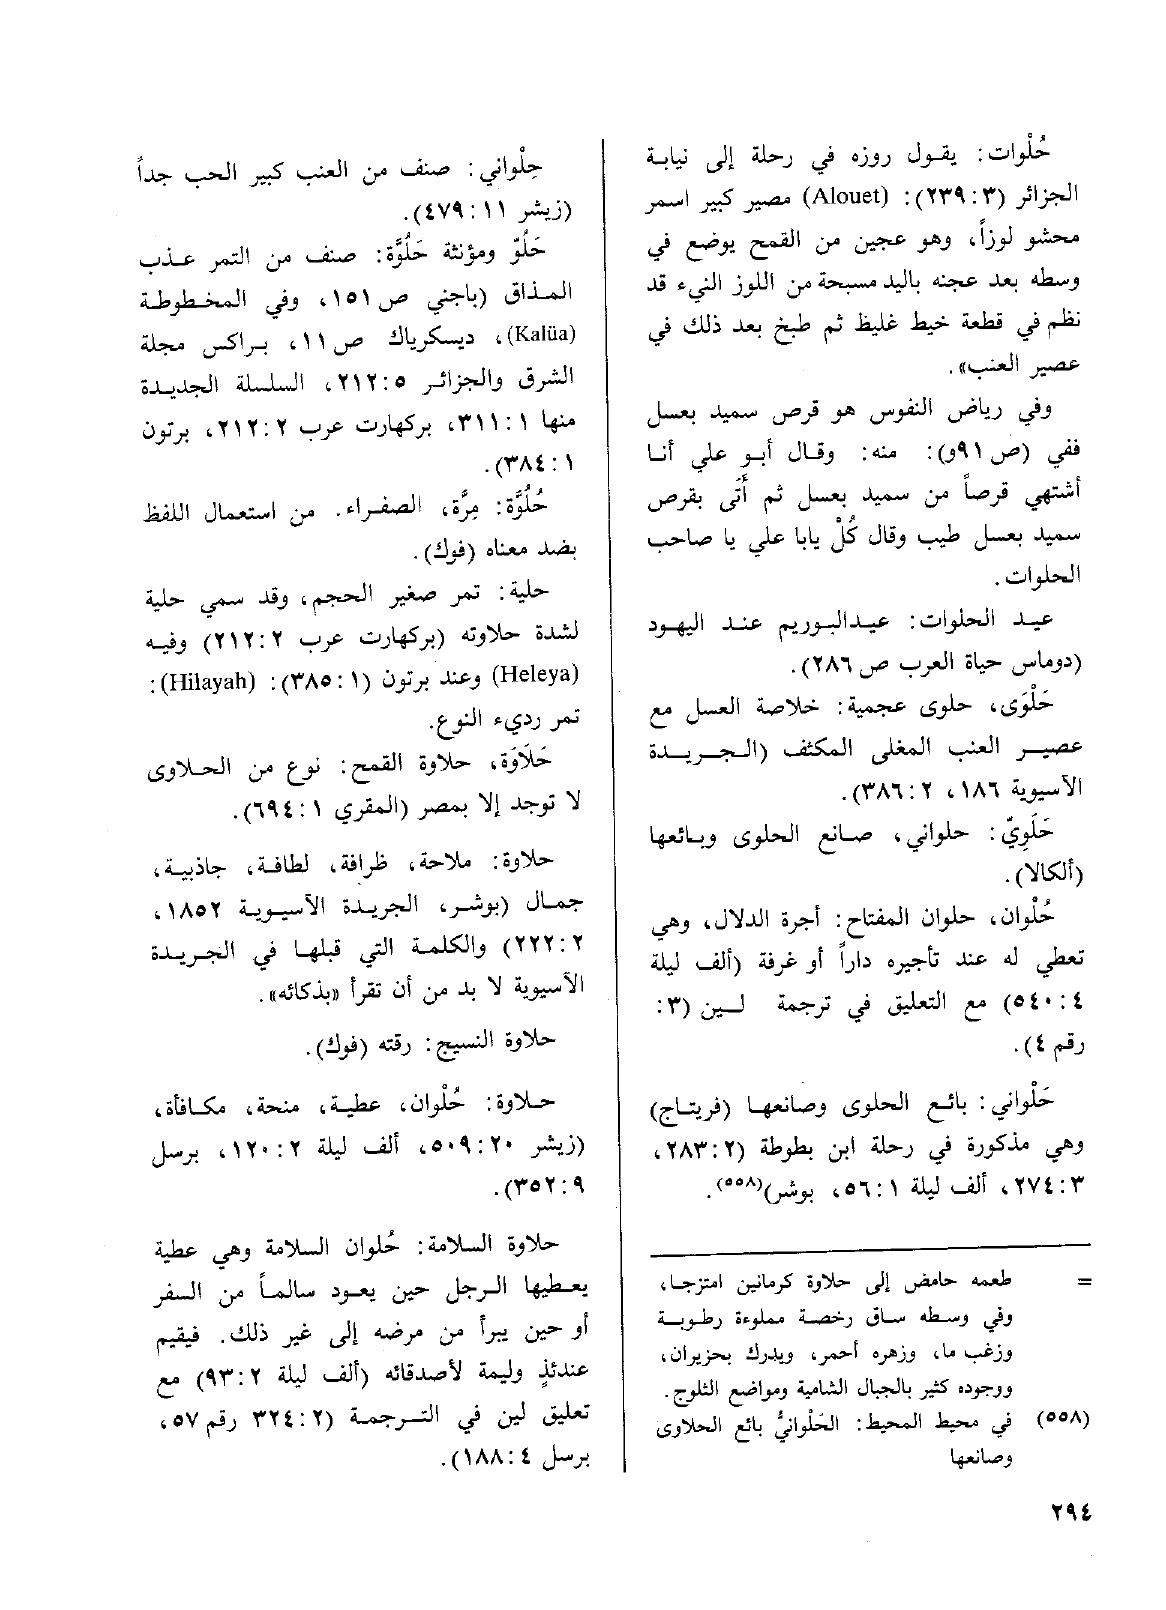 حُلْوات: يقول روزه في رحلة إلى نيابة
الجزائر (٣: ٢٣٩): (Alouet) مصير كبير اسمر
محشو لوزاً، وهو عجين من القمح يوضع في
وسطه بعد عجنه باليد مسبحة من اللوز النيء قد
نظم في قطعة خيط غليظ ثم طبخ بعد ذلك في
عصير العنب».
وفي رياض النفوس هو قرص سميد بعسل
ففي (ص ٩١و): منه: وقال أبو علي أنا
أشتهي قرصاً من سميد بعسل ثم أَتى بقرص
سميد بعسل طيب وقال كُلْ يابا علي يا صاحب
الحلوات.
عيد الحلوات: عيدالبوريم عند اليهود
(دوماس حياة العرب ص ٢٨٦).
حَلْوَى، حلوى عجمية: خلاصة العسل مع
عصير العنب المغلى المكثف (الجريدة
الآسيوية ١٨٦، ٢: ٣٨٦).
حَلَوِيّ: حلواني، صانع الحلوى وبائعها
(ألكالا).
حُلْوان، حلوان المفتاح: أجرة الدلال، وهي
تعطي له عند تأجيره داراً أو غرفة (ألف ليلة
٤: ٥٤٠) مع التعليق في ترجمة لين (٣:
رقم ٤).
حَلْواني: بائع الحلوى وصانعها (فريتاج)
وهي مذكورة في رحلة ابن بطوطة (٢: ٢٨٣،
٣: ٢٧٤، ألف ليلة ١: ٥٦، بوشر)(٥٥٨).
= طعمه حامض إلى حلاوة كرمانين امتزجا،
وفي وسطه ساق رخصة مملوءة رطوبة
وزغب ما، وزهره أحمر، ويدرك بحزيران،
ووجوده كثير بالجبال الشامية ومواضع الثلوج.
(٥٥٨) في محيط المحيط: الحَلْوانيُّ بائع الحلاوى
وصانعها
حِلْواني: صنف من العنب كبير الحب جداً
(زيشر ١١: ٤٧٩).
حَلُوّ ومؤنثة حَلُوَّة: صنف من التمر عذب
المذاق (باجني ص ١٥١، وفي المخطوطة
(Kalüa)، ديسكرياك ص ١١، براكس مجلة
الشرق والجزائر ٥: ٢١٢، السلسلة الجديدة
منها ١: ٣١١، بركهارت عرب ٢: ٢١٢، برتون
١: ٣٨٤).
حُلُوَّة: مِرَّة، الصفراء. من استعمال اللفظ
بضد معناه (فوك).
حلية: تمر صغير الحجم، وقد سمي حلية
لشدة حلاوته (بركهارت عرب ٢: ٢١٢) وفيه
(Heleya) وعند برتون (١: ٣٨٥): (Hilayah):
تمر رديء النوع.
حَلَاوَة، حلاوة القمح: نوع من الحلاوى
لا توجد إلا بمصر (المقري ١: ٦٩٤).
حلاوة: ملاحة، ظرافة، لطافة، جاذبية،
جمال (بوشر، الجريدة الآسيوية ١٨٥٢،
٢: ٢٢٢) والكلمة التي قبلها في الجريدة
الآسيوية لا بد من أن تقرأ «بذكائه».
حلاوة النسيج: رقته (فوك).
حلاوة: حُلْوان، عطية، منحة، مكافأة،
(زيشر ٢٠: ٥٠٩، ألف ليلة ٢: ١٢٠، برسل
٩: ٣٥٢).
حلاوة السلامة: حُلوان السلامة وهي عطية
يعطيها الرجل حين يعود سالماً من السفر
أو حين يبرأ من مرضه إلى غير ذلك. فيقيم
عندئذٍ وليمة لأصدقائه (ألف ليلة ٢: ٩٣) مع
تعليق لين في الترجمة (٢: ٣٢٤ رقم ٥٧،
برسل ٤: ١٨٨).
٢٩٤